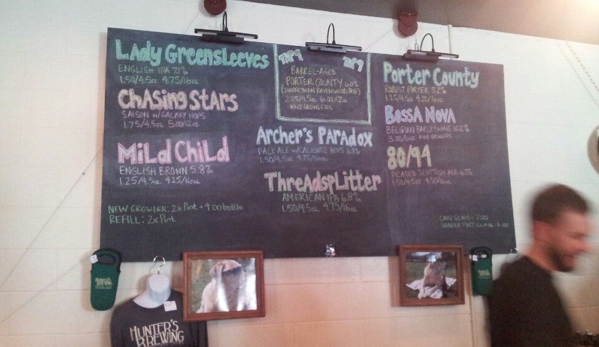 LAdy GreensLeeves
ENGLISH IPA 7.1%
1.50/4.5oz 4.75/16oz
ChAsing StArs
SAISON w/GALAXY HOPS
1.75/4.5oz 5.00/12oz
MiLd ChiLd
ENGLISH BROWN 5.8%
1.25/4.5oz 4.25/16oz
NEW GROWLER: 2x Pint + 4.00 bottle
REFILL: 2x Pint
BARREL-AGED
PORTER COUNTY
Archer's PArAdox
1.50/4.5oz 4.75/16oz
ThreAdspLitter
AMERICAN IPA 6.8%
1.50/4.5oz 4.75/16oz
Porter County
ROBUST PORTER
1.25/4.5oz 4.25/16oz
BossA NovA
BELGIAN BARLEYWINE 10.2%
80/94
PEATED SCOTTISH ALE
1.50/4.5oz
HUNTER'S
BREWING